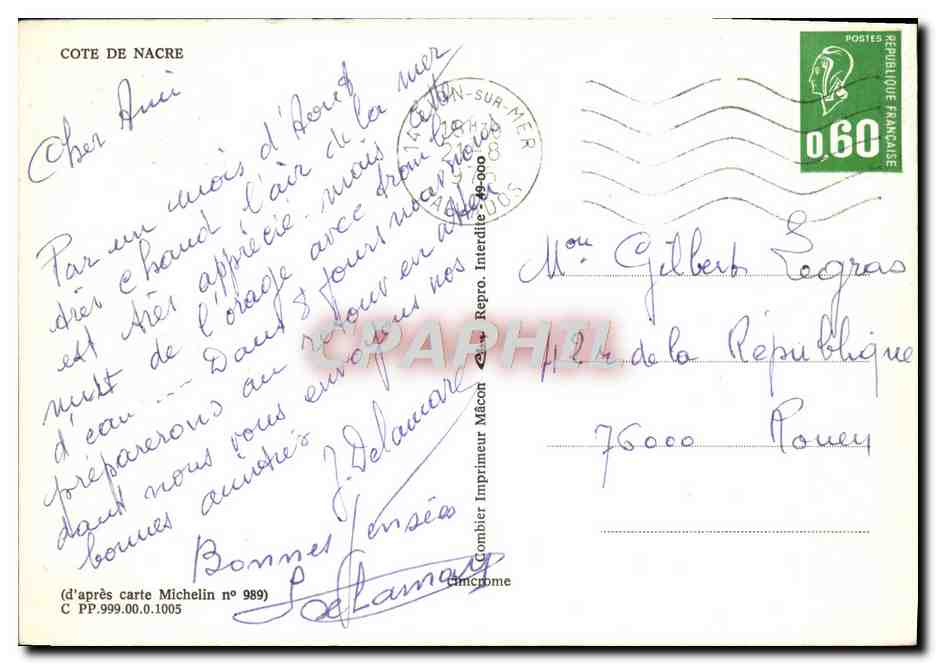 COTE DE NACRE
Cher Ami
Par un mois d'Aout
très chaud l'air de la mer
est très apprécié. mais cette
nuit de l'orage avec trombe
d'eau ... Dans 8 jours nous
préparerons au retour en atten
dant nous vous envoyons nos
bonnes amitiés
J. Delamare
Bonnes Pensées
(d'après carte Michelin nº 989)
C PP.999.00.0.1005
cimcrome
Combier Imprimeur Mâcon Repro. Interdite - 49-000
SUR-MER
CALVADOS
POSTES
REPUBLIQUE FRANÇAISE
0,60
Mr Gilbert Legras
12 r de la République
76000 Rouen
CPAPHIL